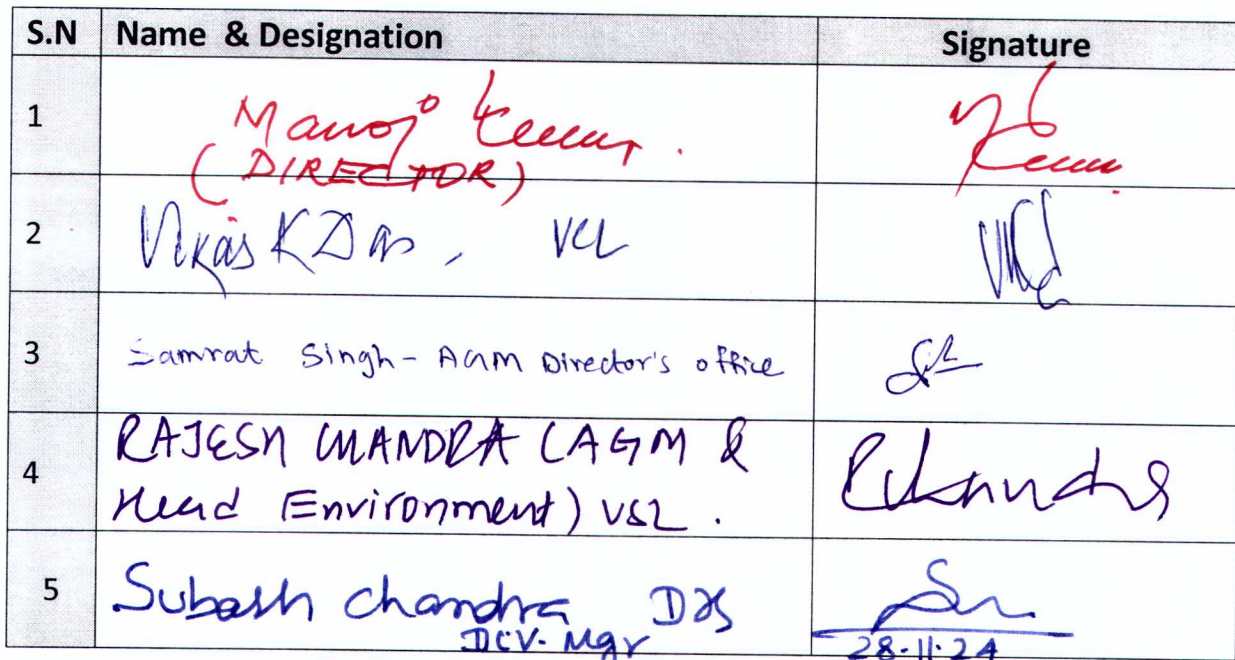 S.N Name & Designation Signature
1 Manoj Kumar.
(DIRECTOR)
2 Vikas K Das, VCL
3 Samrat Singh - AGM Director's office
4 RAJESH CHANDRA (AGM &
Head Environment) VSL.
5 Subash Chandra Das
Dev. Mgr
28.11.24